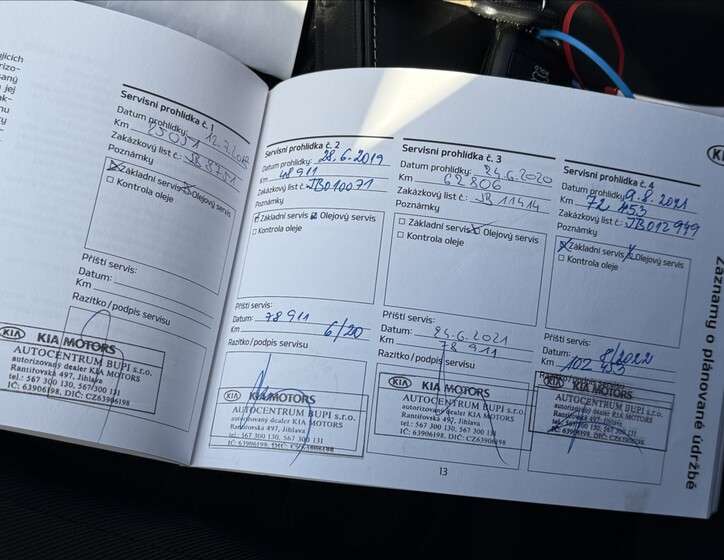 Servisní prohlídka č. 1
Datum prohlídky: 12.7.2018
Km
Zakázkový list č.: JB 8751
Poznámky
Základní servis Olejový servis
Kontrola oleje
Příští servis:
Datum:
Km
Razítko/podpis servisu
KIA KIA MOTORS
AUTOCENTRUM BUPI s.r.o.
autorizovaný dealer KIA MOTORS
Rantířovská 497, Jihlava
tel.: 567 300 130, 567/300 131
IČ: 63906198, DIČ: CZ63906198
Servisní prohlídka č. 2
Datum prohlídky: 28.6.2019
Km 48 911
Zakázkový list č.: JB010071
Poznámky
Základní servis Olejový servis
Kontrola oleje
Příští servis:
Datum: 78 911
Km 6/20
Razítko/podpis servisu
KIA KIA MOTORS
AUTOCENTRUM BUPI s.r.o.
autorizovaný dealer KIA MOTORS
Rantířovská 497, Jihlava
tel.: 567 300 130, 567 300 131
IČ: 63906198, DIČ: CZ63906198
Servisní prohlídka č. 3
Datum prohlídky: 24.6.2020
Km 62 806
Zakázkový list č.: JB 11414
Poznámky
Základní servis Olejový servis
Kontrola oleje
Příští servis:
Datum: 24.6.2021
Km 78 911
Razítko/podpis servisu
KIA KIA MOTORS
AUTOCENTRUM BUPI s.r.o.
autorizovaný dealer KIA MOTORS
Rantířovská 497, Jihlava
tel.: 567 300 130, 567 300 131
IČ: 63906198, DIČ: CZ63906198
Servisní prohlídka č. 4
Datum prohlídky: 9.8.2021
Km 72 453
Zakázkový list č.: JB012949
Poznámky
Základní servis Olejový servis
Kontrola oleje
Příští servis:
Datum: 8/2022
Km 102 453
KIA KIA MOTORS
AUTOCENTRUM BUPI s.r.o.
autorizovaný dealer KIA MOTORS
Rantířovská 497, Jihlava
tel.: 567 300 130, 567 300 131
IČ: 63906198, DIČ: CZ63906198
Záznamy o plánované údržbě
13